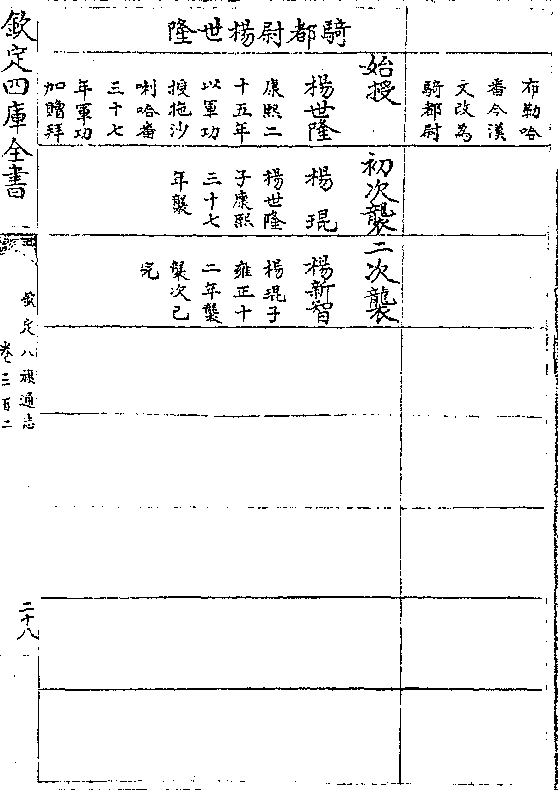 布勒哈
番今漢
文改為
騎都尉
騎都尉楊世隆
始授
楊世隆
康熙二
十五年
以軍功
授拖沙
喇哈番
三十七
年軍功
加贈拜
初次襲
楊琨
楊世隆
子康熙
三十七
年襲
二次襲
楊新智
楊琨子
雍正十
二年襲
襲次已
完
欽定四庫全書
欽定八旗通志
卷三百二
二十八